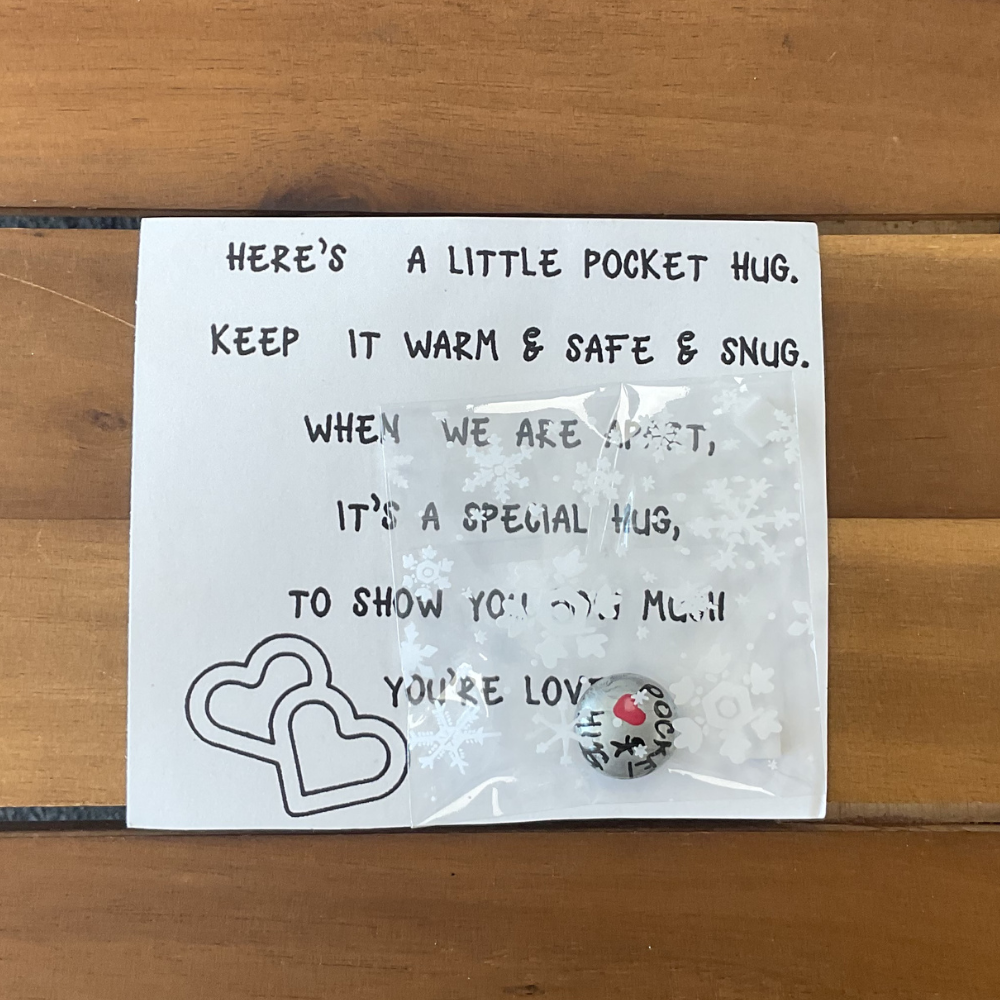 HERE'S A LITTLE POCKET HUG.
KEEP IT WARM & SAFE & SNUG.
WHEN WE ARE APART,
IT'S A SPECIAL HUG,
TO SHOW YOU HOW MUCH
YOU'RE LOVE
POCKET
HUG